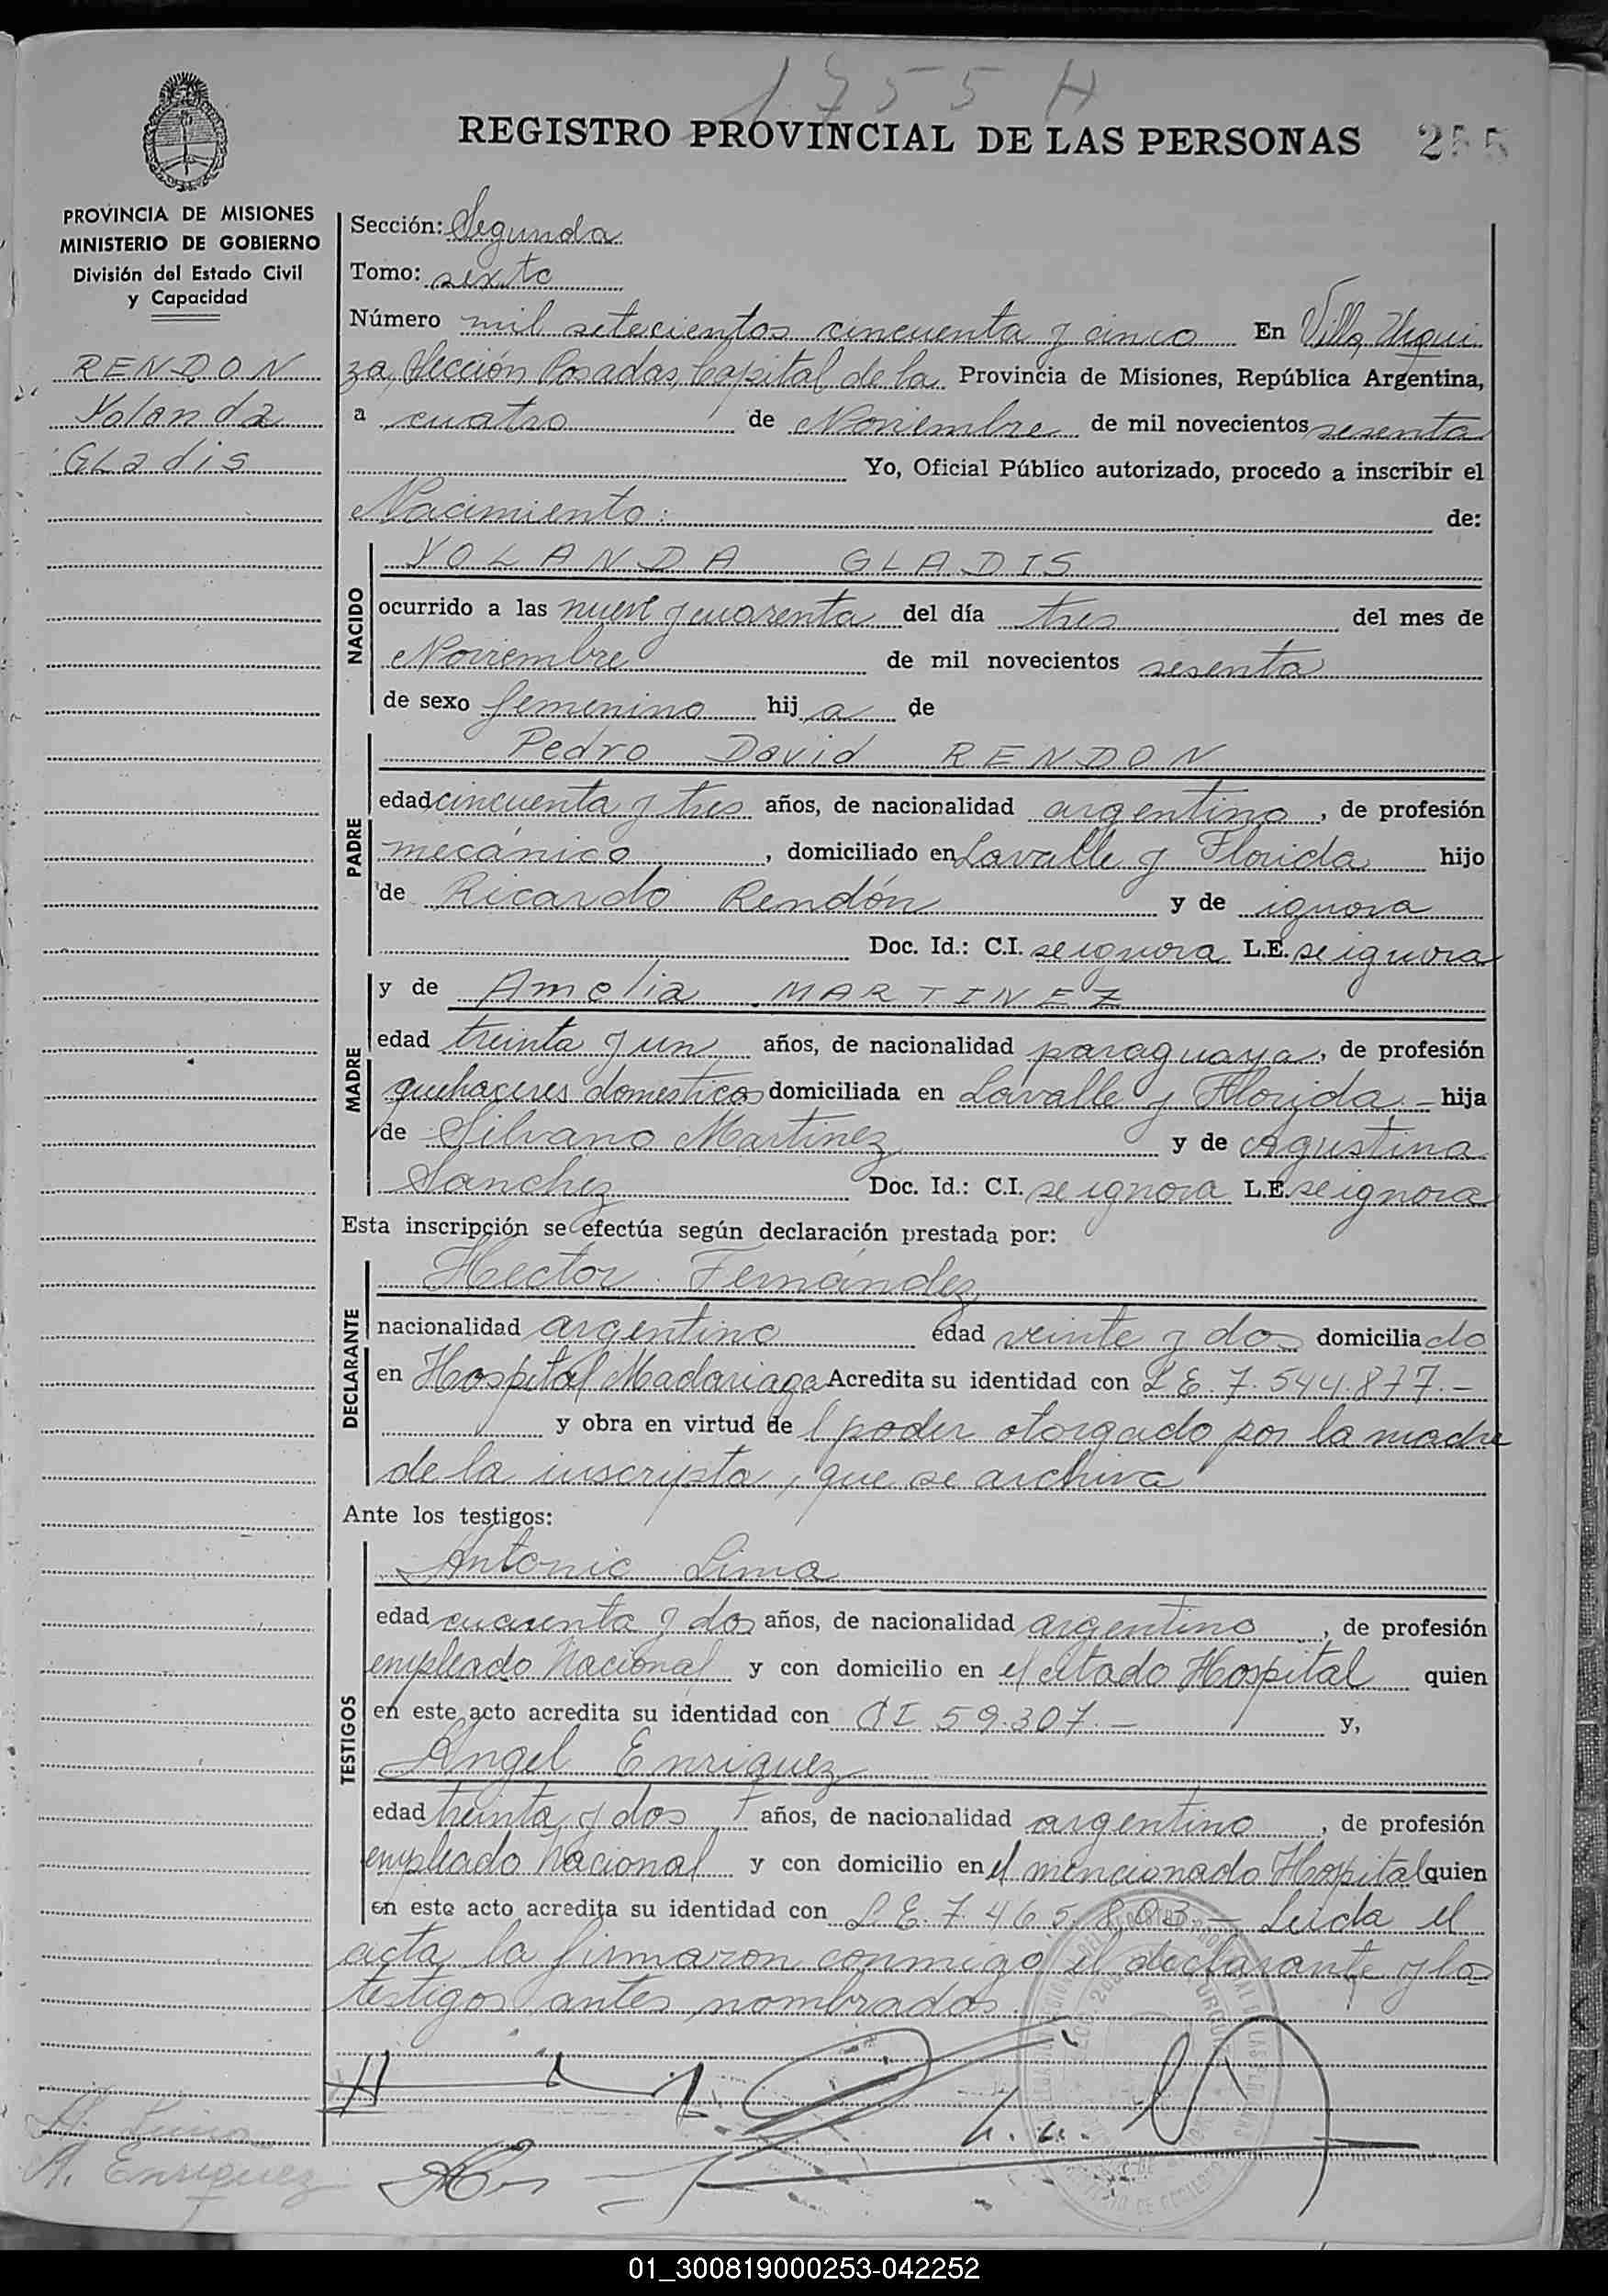 1755 H
REGISTRO PROVINCIAL DE LAS PERSONAS 255
PROVINCIA DE MISIONES
MINISTERIO DE GOBIERNO
División del Estado Civil
y Capacidad
RENDON
Yolanda
GLadis
Sección: Segunda
Tomo: sexto
Número mil setecientos cincuenta y cinco En Villa Urqui
za, Sección Posadas, Capital de la Provincia de Misiones, República Argentina,
a cuatro de Noviembre de mil novecientos sesenta
Yo, Oficial Público autorizado, procedo a inscribir el
Nacimiento: de:
NACIDO
YOLANDA GLADIS
ocurrido a las nueve y cuarenta del día tres del mes de
Noviembre de mil novecientos sesenta
de sexo femenino hija de
PADRE
Pedro David RENDON
edad cincuenta y tres años, de nacionalidad argentino, de profesión
mecánico, domiciliado en Lavalle y Florida hijo
de Ricardo Rendón y de ignora
Doc. Id.: C.I. se ignora L.E. se ignora
MADRE
y de Amelia MARTINEZ
edad treinta y un años, de nacionalidad paraguaya, de profesión
quehaceres domesticos domiciliada en Lavalle y Florida - hija
de Silvano Martinez y de Agustina
Sanchez Doc. Id.: C.I. se ignora L.E. se ignora
Esta inscripción se efectúa según declaración prestada por:
DECLARANTE
Hector Fernández
nacionalidad argentino edad veinte y dos domiciliado
en Hospital Madariaga Acredita su identidad con L E. 7.544.877.-
y obra en virtud del poder otorgado por la madre
de la inscripta, que se archiva
Ante los testigos:
TESTIGOS
Antonio Lima
edad cuarenta y dos años, de nacionalidad argentino, de profesión
empleado Nacional y con domicilio en el citado Hospital quien
en este acto acredita su identidad con CI 59.307.- y,
Angel Enriquez
edad treinta y dos años, de nacionalidad argentino, de profesión
empleado Nacional y con domicilio en el mencionado Hospital quien
en este acto acredita su identidad con L.E. 7.465.803.- Leida el
acta, la firmaron conmigo el declarante y los
testigos antes nombrados.
A. Lima
A. Enriquez
01_300819000253-042252